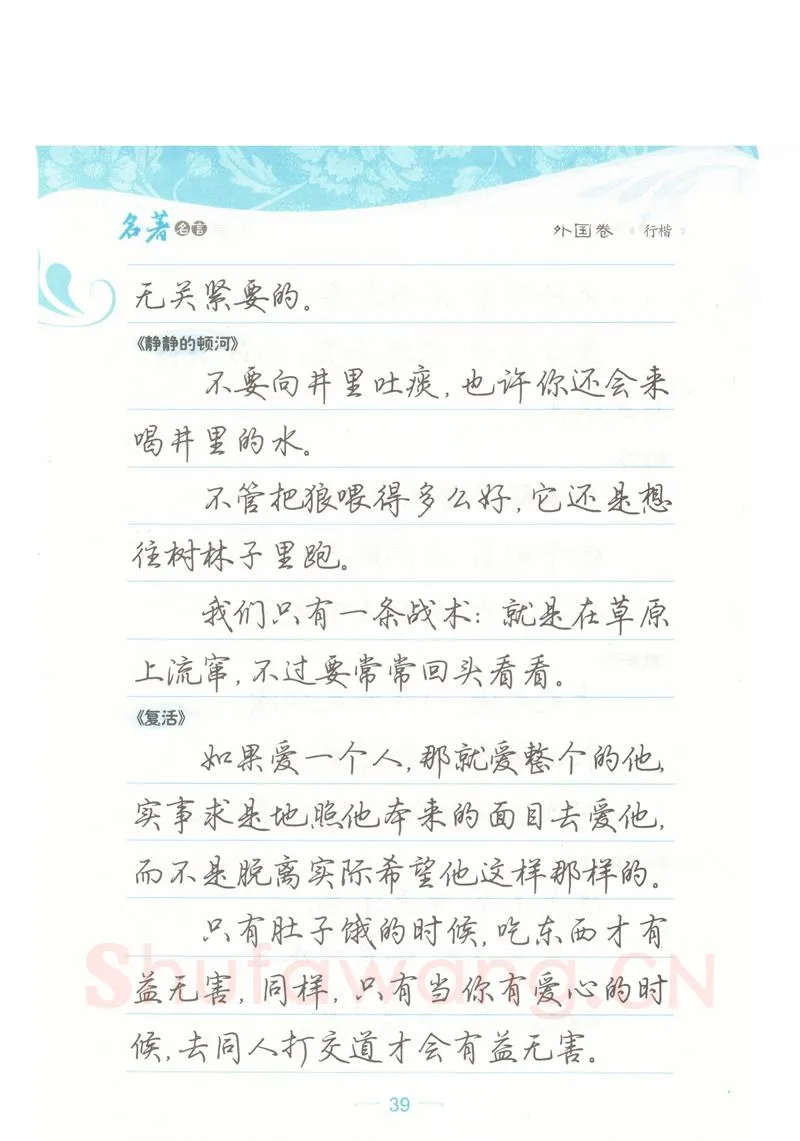 名著名言
外国卷 行楷
无关紧要的。
《静静的顿河》
不要向井里吐痰,也许你还会来
喝井里的水。
不管把狼喂得多么好,它还是想
往树林子里跑。
我们只有一条战术:就是在草原
上流窜,不过要常常回头看看。
《复活》
如果爱一个人,那就爱整个的他,
实事求是地照他本来的面目去爱他,
而不是脱离实际希望他这样那样的。
只有肚子饿的时候,吃东西才有
益无害,同样,只有当你有爱心的时
候,去同人打交道才会有益无害。
Shufawang.CN
39